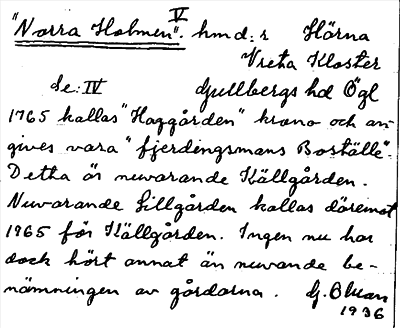 V
"Norra Holmen". hmd: r Hörna
Vreta Kloster
se: IV Gullbergs hd Ögl
1765 kallas "Haggården" krono och an-
gives vara "fjerdengsmans Boställe".
Detta är nuvarande Källgården.
Nuvarande Lillgården kallas däremot
1965 för Källgården. Ingen nu har
dock hört annat än nuvande be-
nämningen av gårdarna. G.
1936